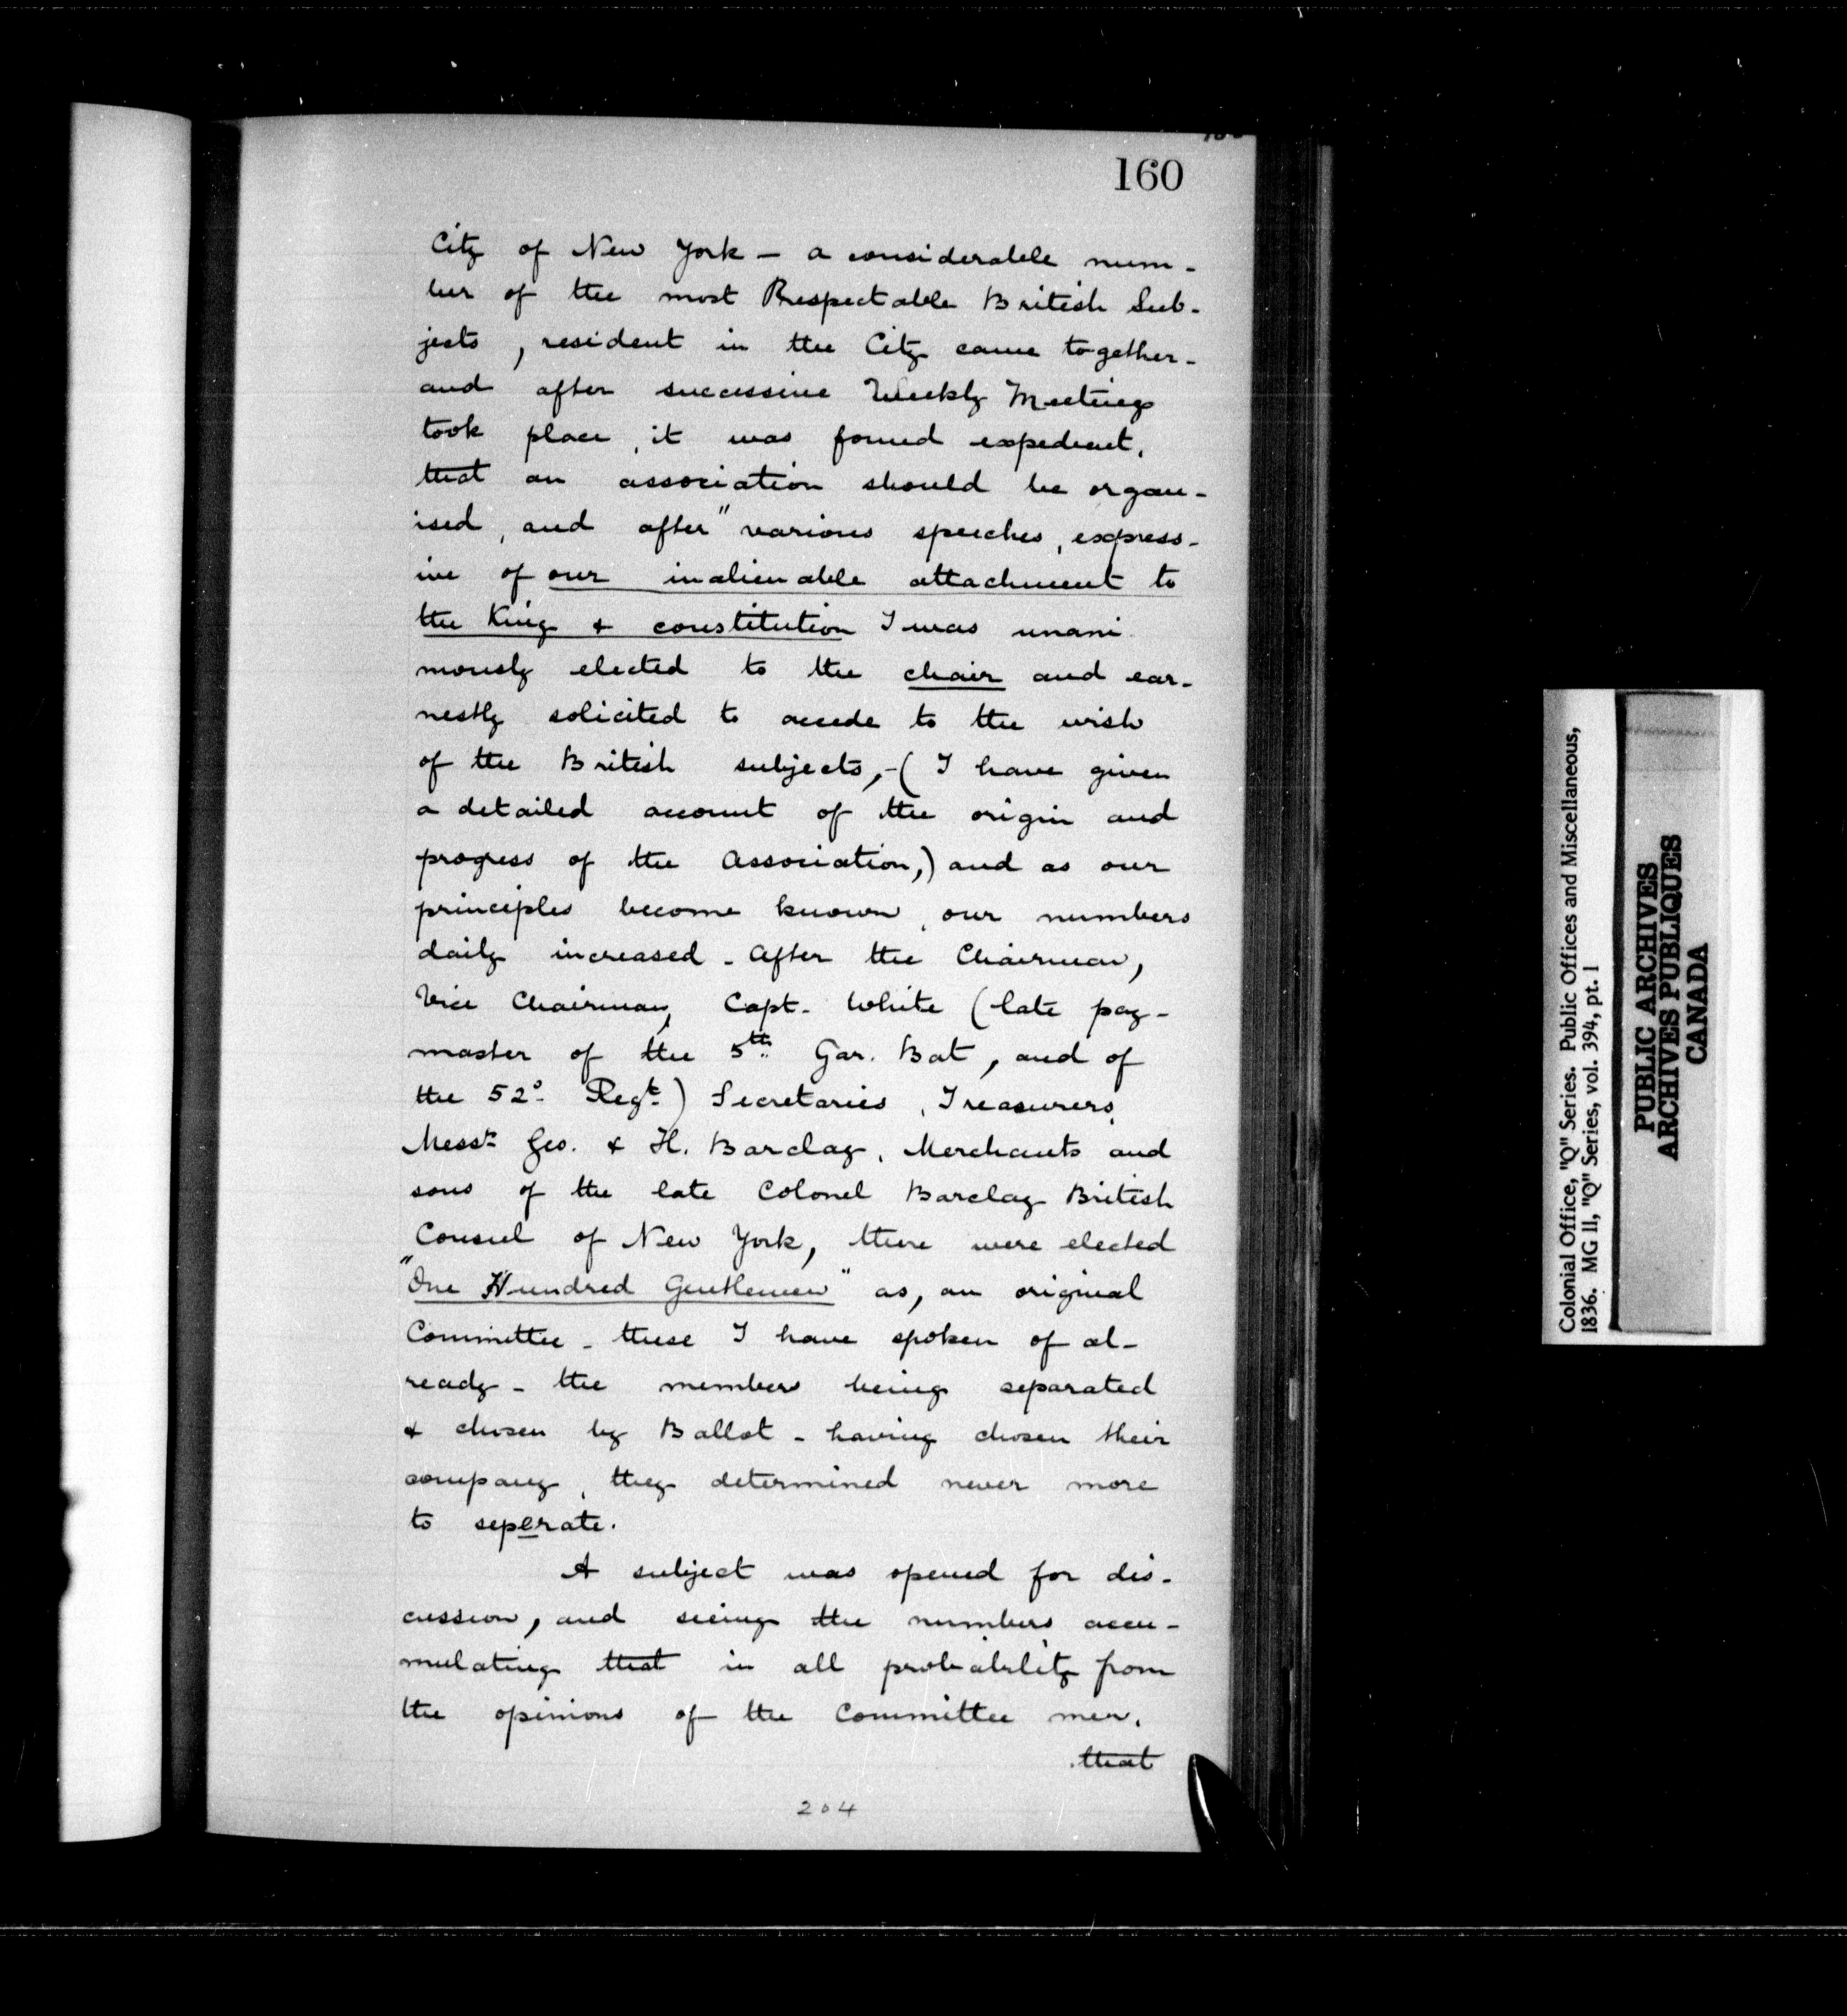 160
City of New York – a considerable num-
ber of the most Respectable British Sub-
jects, resident in the City came together-
and after successive Weekly Meetings
took place, it was found expedient,
that an association should be organ-
ised, and after "various speeches, express-
ive of our inalienable attachment to
the King & constitution I was unani
mously elected to the chair and ear-
nestly solicited to accede to the wish
of the British subjects,-( I have given
a detailed account of the origin and
progress of the Association,) and as our
principles become known, our numbers
daily increased - After the Chairman,
Vice Chairman, Capt. White (late pay-
master of the 5th Gar. Bat, and of
the 52d Regt.) Secretaries, Treasurers,
Messrs Geo. & H. Barclay, Merchants and
sons of the late Colonel Barclay British
Consul of New York, there were elected
"One Hundred Gentlemen" as, an original
Committee - these I have spoken of al-
ready - the members being separated
& chosen by Ballot - having chosen their
company, they determined never more
to seperate.
A subject was opened for dis-
cussion, and seeing the numbers accu-
mulating that in all probability from
the opinions of the Committee men,
that
204
Colonial Office, "Q" Series. Public Offices and Miscellaneous,
1836. MG 11, "Q" Series, vol. 394, pt. 1
PUBLIC ARCHIVES
ARCHIVES PUBLIQUES
CANADA